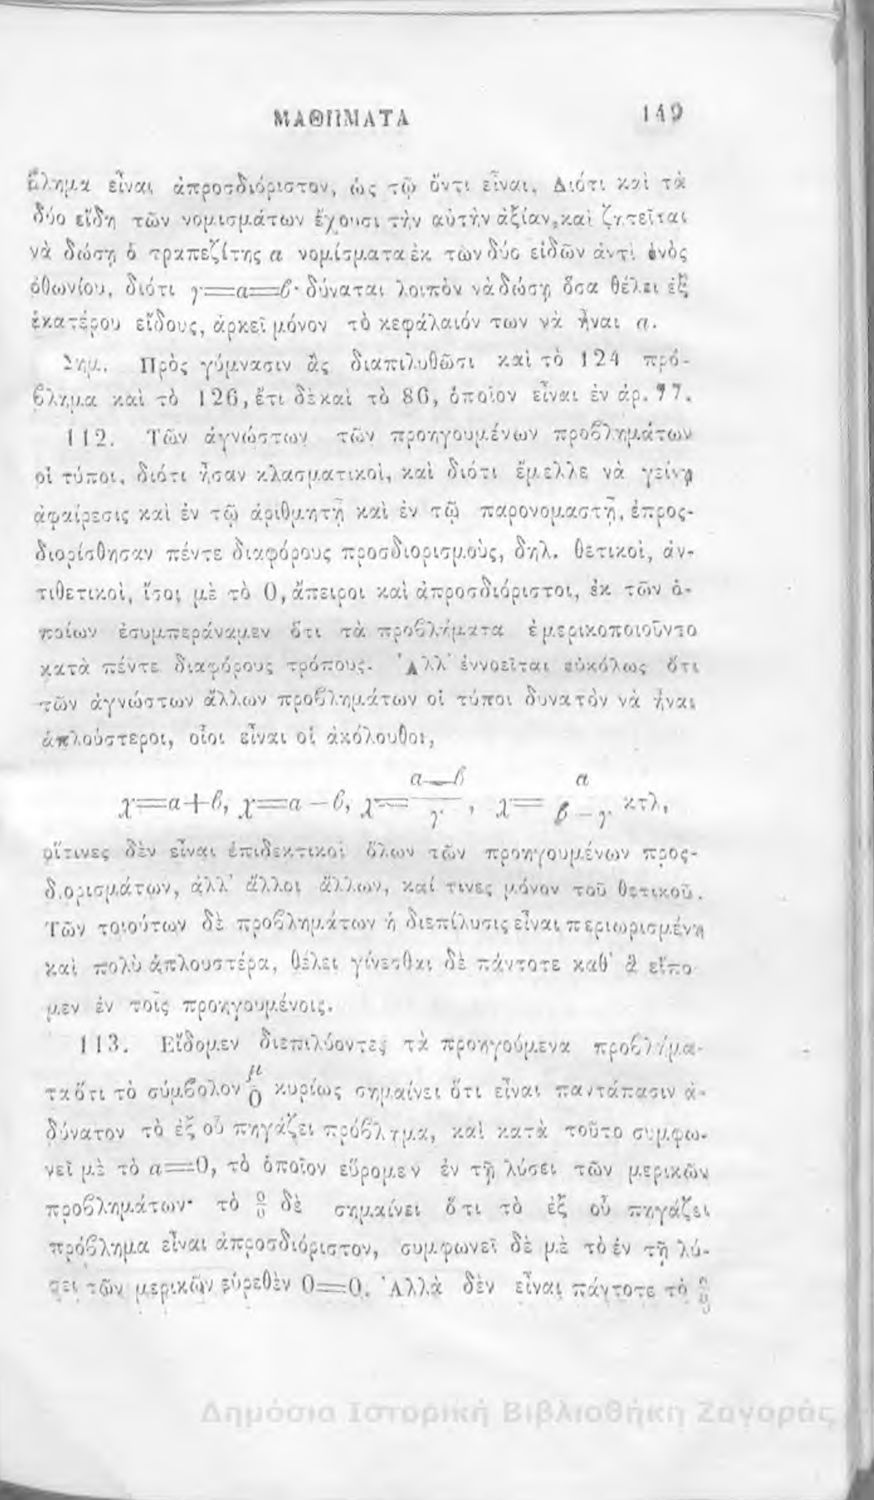 ΜΑΘΗΜΑΤΑ 149
βλημα εἶναι ἀπροσδιόριστον, ὡς τῷ ὄντι εἶναι. Διότι καὶ τὰ
δύο εἴδη τῶν νομισμάτων ἔχουσι τὴν αὐτὴν ἀξίαν, καὶ ζητεῖται
νὰ δώσῃ ὁ τραπεζίτης α νομίσματα ἐκ τῶν δύο εἰδῶν ἀντὶ ἑνὸς
ὀθωνίου, διότι γ=α=β· δύναται λοιπὸν νὰ δώσῃ ὅσα θέλει ἐξ
ἑκατέρου εἴδους, ἀρκεῖ μόνον τὸ κεφάλαιόν των νὰ ἦναι α.
Σημ. Πρὸς γύμνασιν ἂς διαπιλυθῶσι καὶ τὸ 124 πρό-
βλημα καὶ τὸ 126, ἔτι δὲ καὶ τὸ 86, ὁποῖον εἶναι ἐν ἀρ. 77.
112. Τῶν ἀγνώστων τῶν προηγουμένων προβλημάτων
οἱ τύποι, διότι ἦσαν κλασματικοὶ, καὶ διότι ἔμελλε νὰ γείνῃ
ἀφαίρεσις καὶ ἐν τῷ ἀριθμητῇ καὶ ἐν τῷ παρονομαστῇ, ἐπρος-
διορίσθησαν πέντε διαφόρους προσδιορισμοὺς, δηλ. θετικοὶ, ἀν-
τιθετικοὶ, ἴσοι μὲ τὸ 0, ἄπειροι καὶ ἀπροσδιόριστοι, ἐκ τῶν ὁ-
ποίων ἐσυμπεράναμεν ὅτι τὰ προβλήματα ἐμερικοποιοῦντο
κατὰ πέντε διαφόρους τρόπους. Ἀλλ' ἐννοεῖται εὐκόλως ὅτι
τῶν ἀγνώστων ἄλλων προβλημάτων οἱ τύποι δυνατὸν νὰ ἦναι
ἁπλούστεροι, οἷοι εἶναι οἱ ἀκόλουθοι,
χ=α+β, χ=α—β, χ=(α—β)/γ, χ=α/(β—γ) κτλ,
οἵτινες δὲν εἶναι ἐπιδεκτικοὶ ὅλων τῶν προηγουμένων προς-
διορισμάτων, ἀλλ' ἄλλοι ἄλλων, καί τινες μόνον τοῦ θετικοῦ.
Τῶν τοιούτων δὲ προβλημάτων ἡ διεπίλυσις εἶναι περιωρισμένη
καὶ πολὺ ἁπλουστέρα, θέλει γίνεσθαι δὲ πάντοτε καθ' ἃ εἴπο
μεν ἐν τοῖς προηγουμένοις.
113. Εἴδομεν διεπιλύοντες τὰ προηγούμενα προβλήμα-
τα ὅτι τὸ σύμβολον μ/0 κυρίως σημαίνει ὅτι εἶναι παντάπασιν ἀ-
δύνατον τὸ ἐξ οὗ πηγάζει πρόβλημα, καὶ κατὰ τοῦτο συμφω-
νεῖ μὲ τὸ α=0, τὸ ὁποῖον εὕρομεν ἐν τῇ λύσει τῶν μερικῶν
προβλημάτων· τὸ 0/0 δὲ σημαίνει ὅτι τὸ ἐξ οὗ πηγάζει
πρόβλημα εἶναι ἀπροσδιόριστον, συμφωνεῖ δὲ μὲ τὸ ἐν τῇ λύ-
σει τῶν μερικῶν εὑρεθὲν 0=0. Ἀλλὰ δὲν εἶναι πάντοτε τὸ 0/0
Δημόσια Ιστορική Βιβλιοθήκη Ζαγοράς